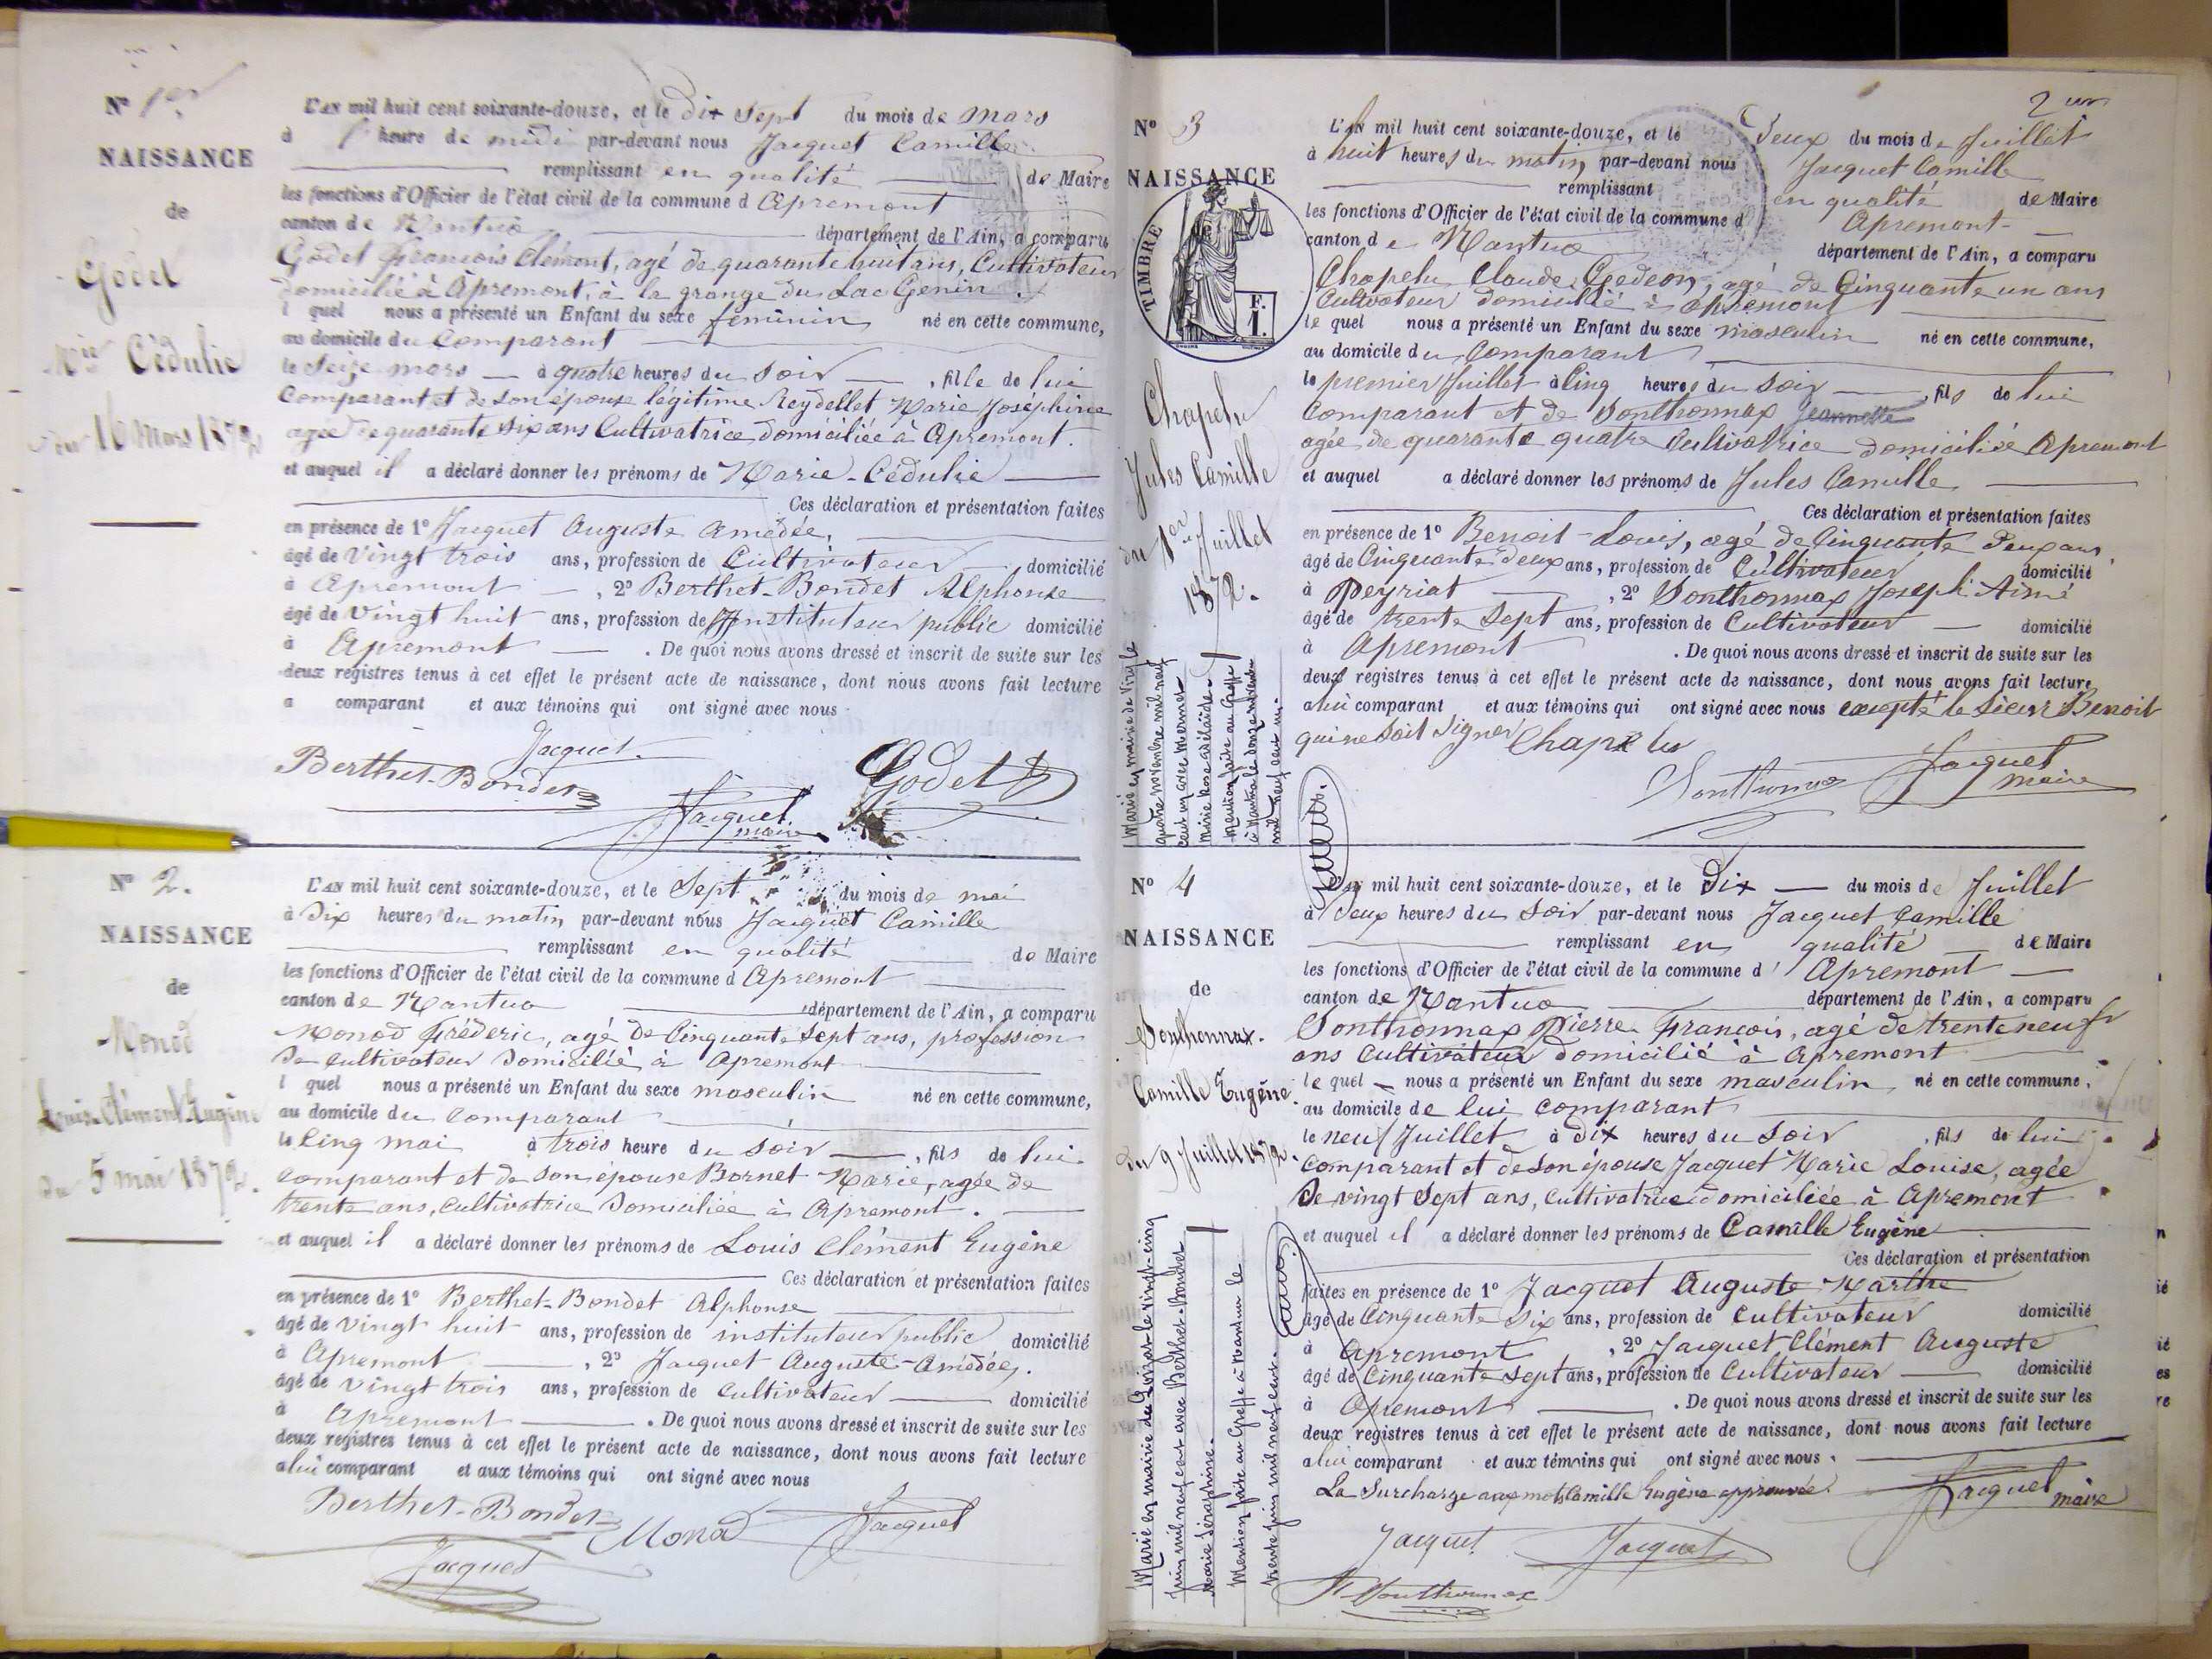 N° 1er
NAISSANCE
de
Godet
Mie Cédulie
du 16 Mars 1872
L'AN mil huit cent soixante-douze, et le dix Sept du mois de Mars
à 1 heure de midi par-devant nous Jacquet Camille
remplissant en qualité de Maire
les fonctions d'Officier de l'état civil de la commune d Apremont
canton de Nantua département de l'Ain, a comparu
Godet François Clément, agé de quarante huit ans, Cultivateur
domicilié à Apremont, à la grange du Lac Genin.
l quel nous a présenté un Enfant du sexe féminin né en cette commune,
au domicile du Comparant
le Seize mars à quatre heures du Soir , fille de lui
Comparant et de son épouse légitime Reydellet Marie Joséphine
agée de quarante six ans Cultivatrice domiciliée à Apremont.
et auquel il a déclaré donner les prénoms de Marie-Cédulie
Ces déclaration et présentation faites
en présence de 1° Jacquet Auguste Amédée,
âgé de Vingt trois ans, profession de Cultivateur domicilié
à Apremont , 2° Berthet-Bondet Alphonse
âgé de Vingt huit ans, profession de Instituteur public domicilié
à Apremont . De quoi nous avons dressé et inscrit de suite sur les
deux registres tenus à cet effet le présent acte de naissance, dont nous avons fait lecture
a comparant et aux témoins qui ont signé avec nous
Jacquet
Berthet-Bondet
Godet
Jacquet
maire
N° 2.
NAISSANCE
de
Monod
Louis Clément Eugène
du 5 mai 1872.
L'AN mil huit cent soixante-douze, et le Sept du mois de mai
à Dix heures du matin par-devant nous Jacquet Camille
remplissant en qualité de Maire
les fonctions d'Officier de l'état civil de la commune d Apremont
canton de Nantua département de l'Ain, a comparu
Monod Fréderic, agé de Cinquante Sept ans, profession
de Cultivateur Domicilié à Apremont
l quel nous a présenté un Enfant du sexe masculin né en cette commune,
au domicile du Comparant
le Cinq mai à trois heure du Soir , fils de lui
Comparant et de son épouse Bornet Marie, agée de
trente ans, Cultivatrice Domiciliée à Apremont.
et auquel il a déclaré donner les prénoms de Louis Clément Eugène
Ces déclaration et présentation faites
en présence de 1° Berthet-Bondet Alphonse
âgé de Vingt huit ans, profession de instituteur public domicilié
à Apremont , 2° Jacquet Auguste-Amédée.
âgé de Vingt trois ans, profession de Cultivateur domicilié
à Apremont . De quoi nous avons dressé et inscrit de suite sur les
deux registres tenus à cet effet le présent acte de naissance, dont nous avons fait lecture
a lui comparant et aux témoins qui ont signé avec nous
Berthet-Bondet
Monod
Jacquet
Jacquet
2
N° 3
NAISSANCE
de
TIMBRE
F.
1.
Chapelu
Jules Camille
du 1er Juillet
1872.
Marié en mairie de Viry le
quatre novembre mil neuf
cent un avec Mermet
Marie Rose Adélaïde.
Mention faite au Greffe
à Nantua le douze novembre
mil neuf cent un.
L'AN mil huit cent soixante-douze, et le Deux du mois de Juillet
à huit heures du matin, par-devant nous Jacquet Camille
remplissant en qualité de Maire
les fonctions d'Officier de l'état civil de la commune d Apremont
canton de Nantua département de l'Ain, a comparu
Chapelu Claude Gedeon, agé de Cinquante un ans
Cultivateur domicilié à Apremont
le quel nous a présenté un Enfant du sexe masculin né en cette commune,
au domicile du Comparant
le premier Juillet à Cinq heures du Soir , fils de lui
Comparant et de Sonthonnax Jeannette
agée de quarante quatre Cultivatrice domiciliée Apremont
et auquel a déclaré donner les prénoms de Jules Camille
Ces déclaration et présentation faites
en présence de 1° Benoit Louis, agé de Cinquante Deux ans
âgé de Cinquante deux ans, profession de Cultivateur domicilié
à Peyriat , 2° Sonthonnax Joseph Aimé
âgé de trente Sept ans, profession de Cultivateur domicilié
à Apremont . De quoi nous avons dressé et inscrit de suite sur les
deux registres tenus à cet effet le présent acte de naissance, dont nous avons fait lecture
a lui comparant et aux témoins qui ont signé avec nous excepté le Sieur Benoit
qui ne Sait Signer Chapelu
Sonthonnax
Jacquet
maire
N° 4
NAISSANCE
de
Sonthonnax.
Camille Eugène.
du 9 Juillet 1872.
Marié en mairie de Géovreissiat le Vingt-cinq
Juin mil neuf cent avec Berthet-Bondet
Marie Séraphine.
Mention faite au Greffe à Nantua le
trente Juin mil neuf cent.
L'AN mil huit cent soixante-douze, et le Dix du mois de Juillet
à Deux heures du Soir par-devant nous Jacquet Camille
remplissant en qualité de Maire
les fonctions d'Officier de l'état civil de la commune d' Apremont
canton de Nantua département de l'Ain, a comparu
Sonthonnax Pierre François, agé de trente neuf
ans Cultivateur domicilié à Apremont
le quel nous a présenté un Enfant du sexe masculin né en cette commune,
au domicile de lui comparant
le neuf Juillet à dix heures du Soir , fils de lui
Comparant et de son épouse Jacquet Marie Louise, agée
de vingt Sept ans, Cultivatrice domiciliée à Apremont
et auquel il a déclaré donner les prénoms de Camille Eugène
Ces déclaration et présentation
faites en présence de 1° Jacquet Auguste Marthe
âgé de Cinquante Six ans, profession de Cultivateur domicilié
à Apremont , 2° Jacquet Clément Auguste
âgé de Cinquante Sept ans, profession de Cultivateur domicilié
à Apremont . De quoi nous avons dressé et inscrit de suite sur les
deux registres tenus à cet effet le présent acte de naissance, dont nous avons fait lecture
a lui comparant et aux témoins qui ont signé avec nous.
La Surcharge aux mots Camille Eugène approuvée.
Jacquet maire
Jacquet
Jacquet
Sonthonnax